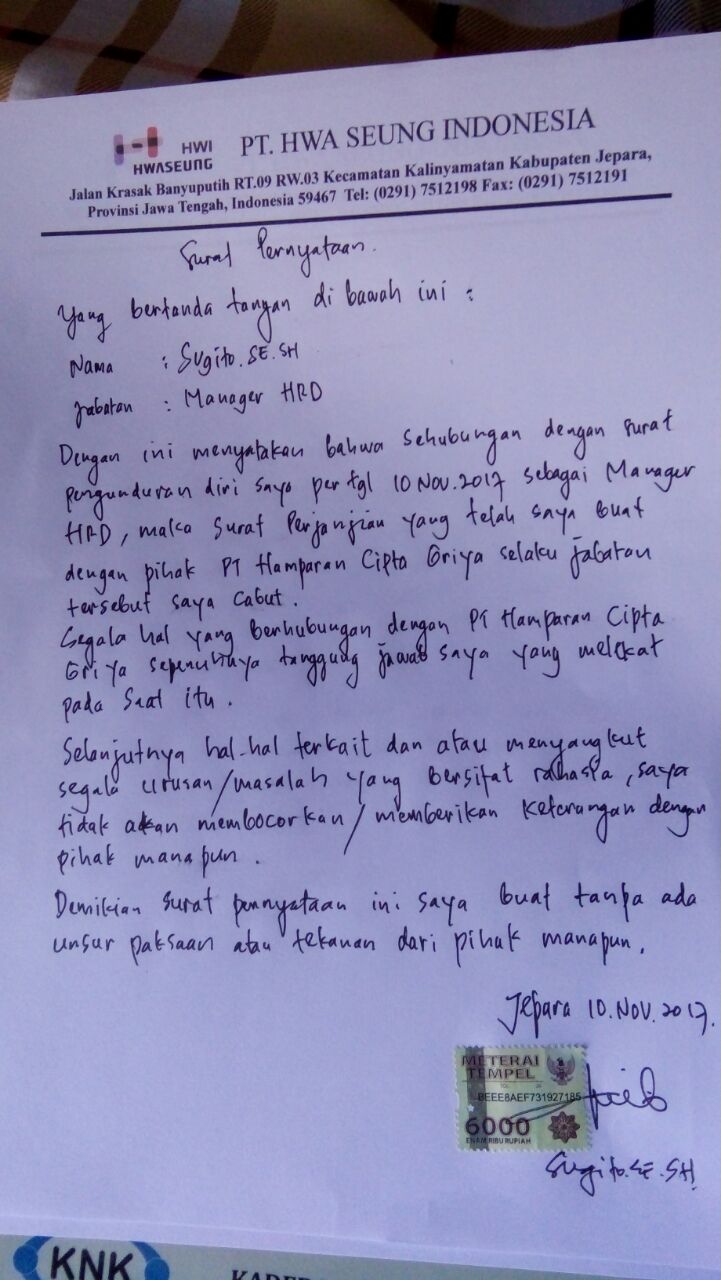 HWI
HWASEUNG
PT. HWA SEUNG INDONESIA
Jalan Krasak Banyuputih RT.09 RW.03 Kecamatan Kalinyamatan Kabupaten Jepara,
Provinsi Jawa Tengah, Indonesia 59467 Tel: (0291) 7512198 Fax: (0291) 7512191
Surat Pernyataan.
Yang bertanda tangan di bawah ini :
Nama : Sugito.SE.SH
Jabatan : Manager HRD
Dengan ini menyatakan bahwa sehubungan dengan surat
pengunduran diri saya per tgl 10 Nov.2017 sebagai Manager
HRD, maka surat Perjanjian yang telah saya buat
dengan pihak PT Hamparan Cipta Griya selaku jabatan
tersebut saya cabut.
Segala hal yang berhubungan dengan PT Hamparan Cipta
Griya sepenuhnya tanggung jawab saya yang melekat
pada saat itu.
Selanjutnya hal-hal terkait dan atau menyangkut
segala urusan/masalah yang bersifat rahasia, saya
tidak akan membocorkan/memberikan keterangan dengan
pihak manapun.
Demikian surat pernyataan ini saya buat tanpa ada
unsur paksaan atau tekanan dari pihak manapun.
Jepara 10.Nov.2017.
METERAI
TEMPEL
BEEE8AEF731927185
6000
ENAM RIBU RUPIAH
Sugito.SE.SH
KNK